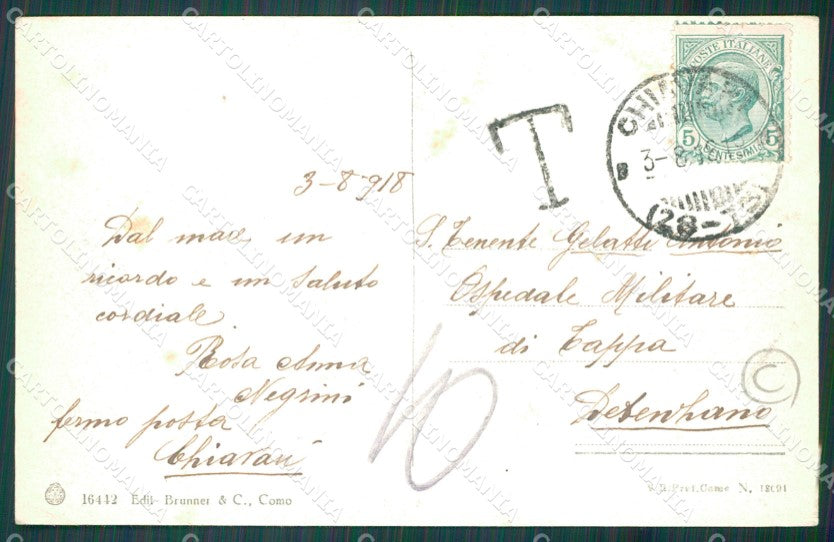 POSTE ITALIANE
5 CENTESIMI 5
CHIAVARI
3-8
(28-13)
T
3-8 918
Dal mare un
ricordo e un saluto
cordiale
Rosa Anna
Negrini
fermo posta
Chiavari
S. Tenente Gelatti Antonio
Ospedale Militare
di Tappa
Desenzano
10
C
16442 Edit- Brunner & C., Como
Pref. Como N. 18691
CARTOLINOMANIA